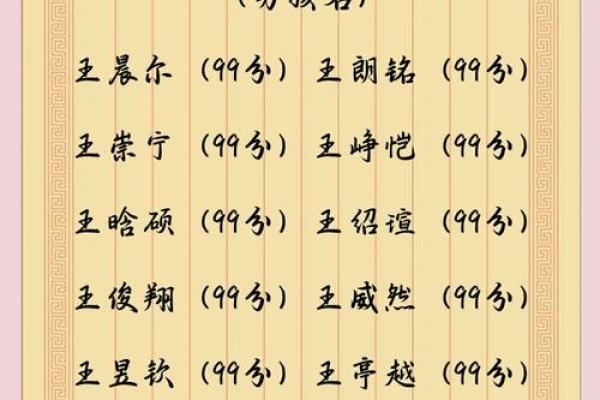 (男孩名)
王晨尔 (99分) 王朗铭 (99分)
王崇宁 (99分) 王峥恺 (99分)
王晗硕 (99分) 王绍瑄 (99分)
王俊翔 (99分) 王威然 (99分)
王昱钦 (99分) 王亭越 (99分)